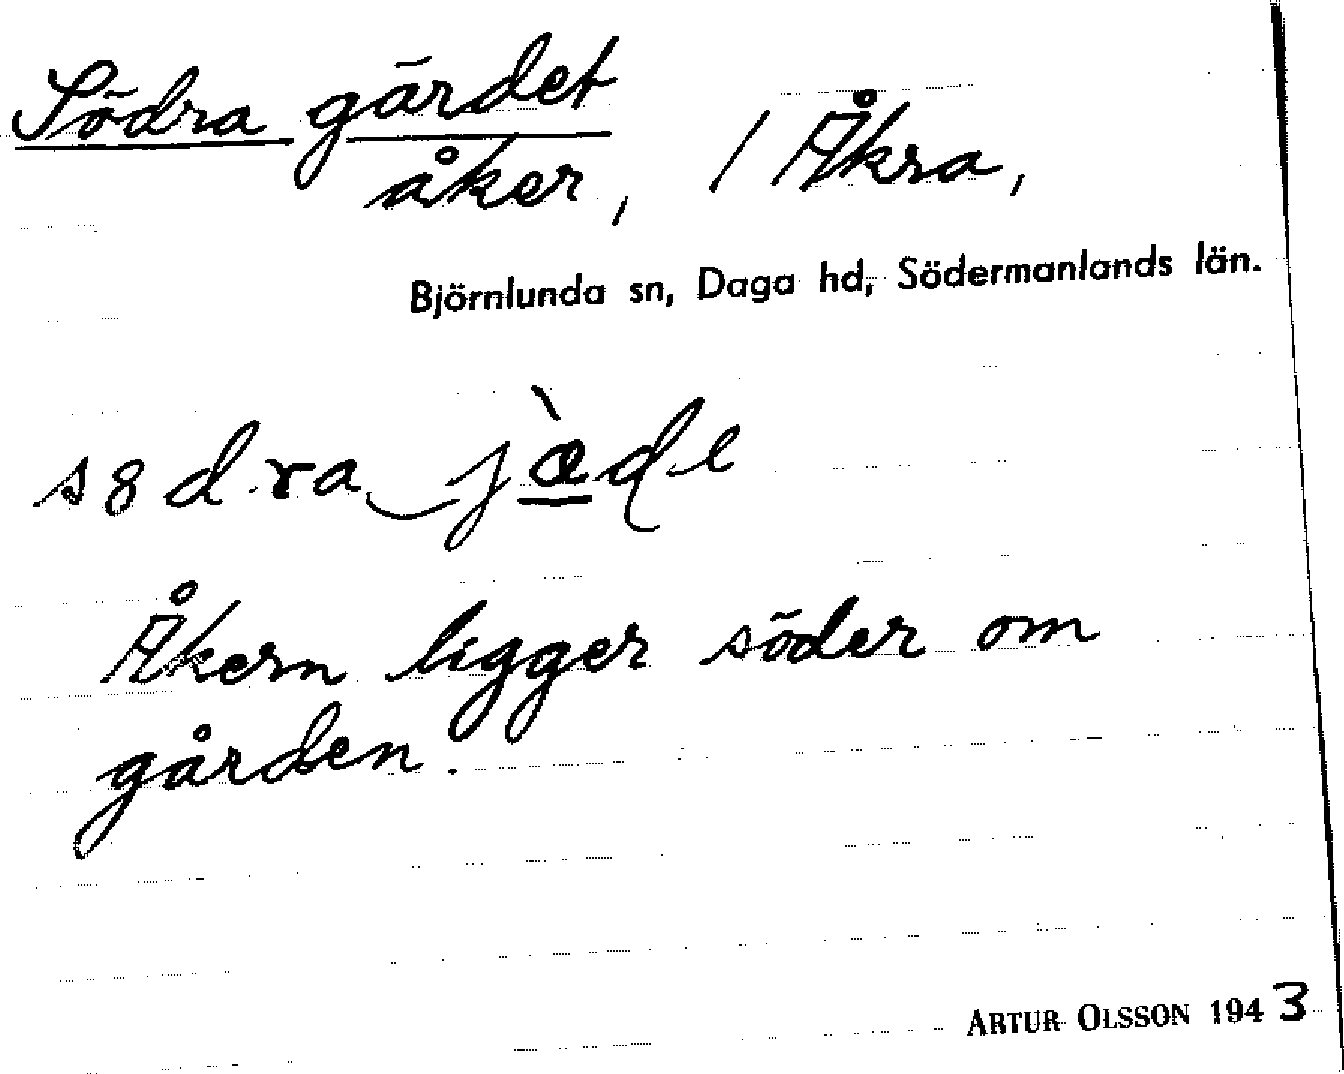 Södra gärdet
åker, / Åkra,
Björnlunda sn, Daga hd, Södermanlands län.
s8dra j
Åkern ligger söder om
gården.
ARTUR OLSSON 1943